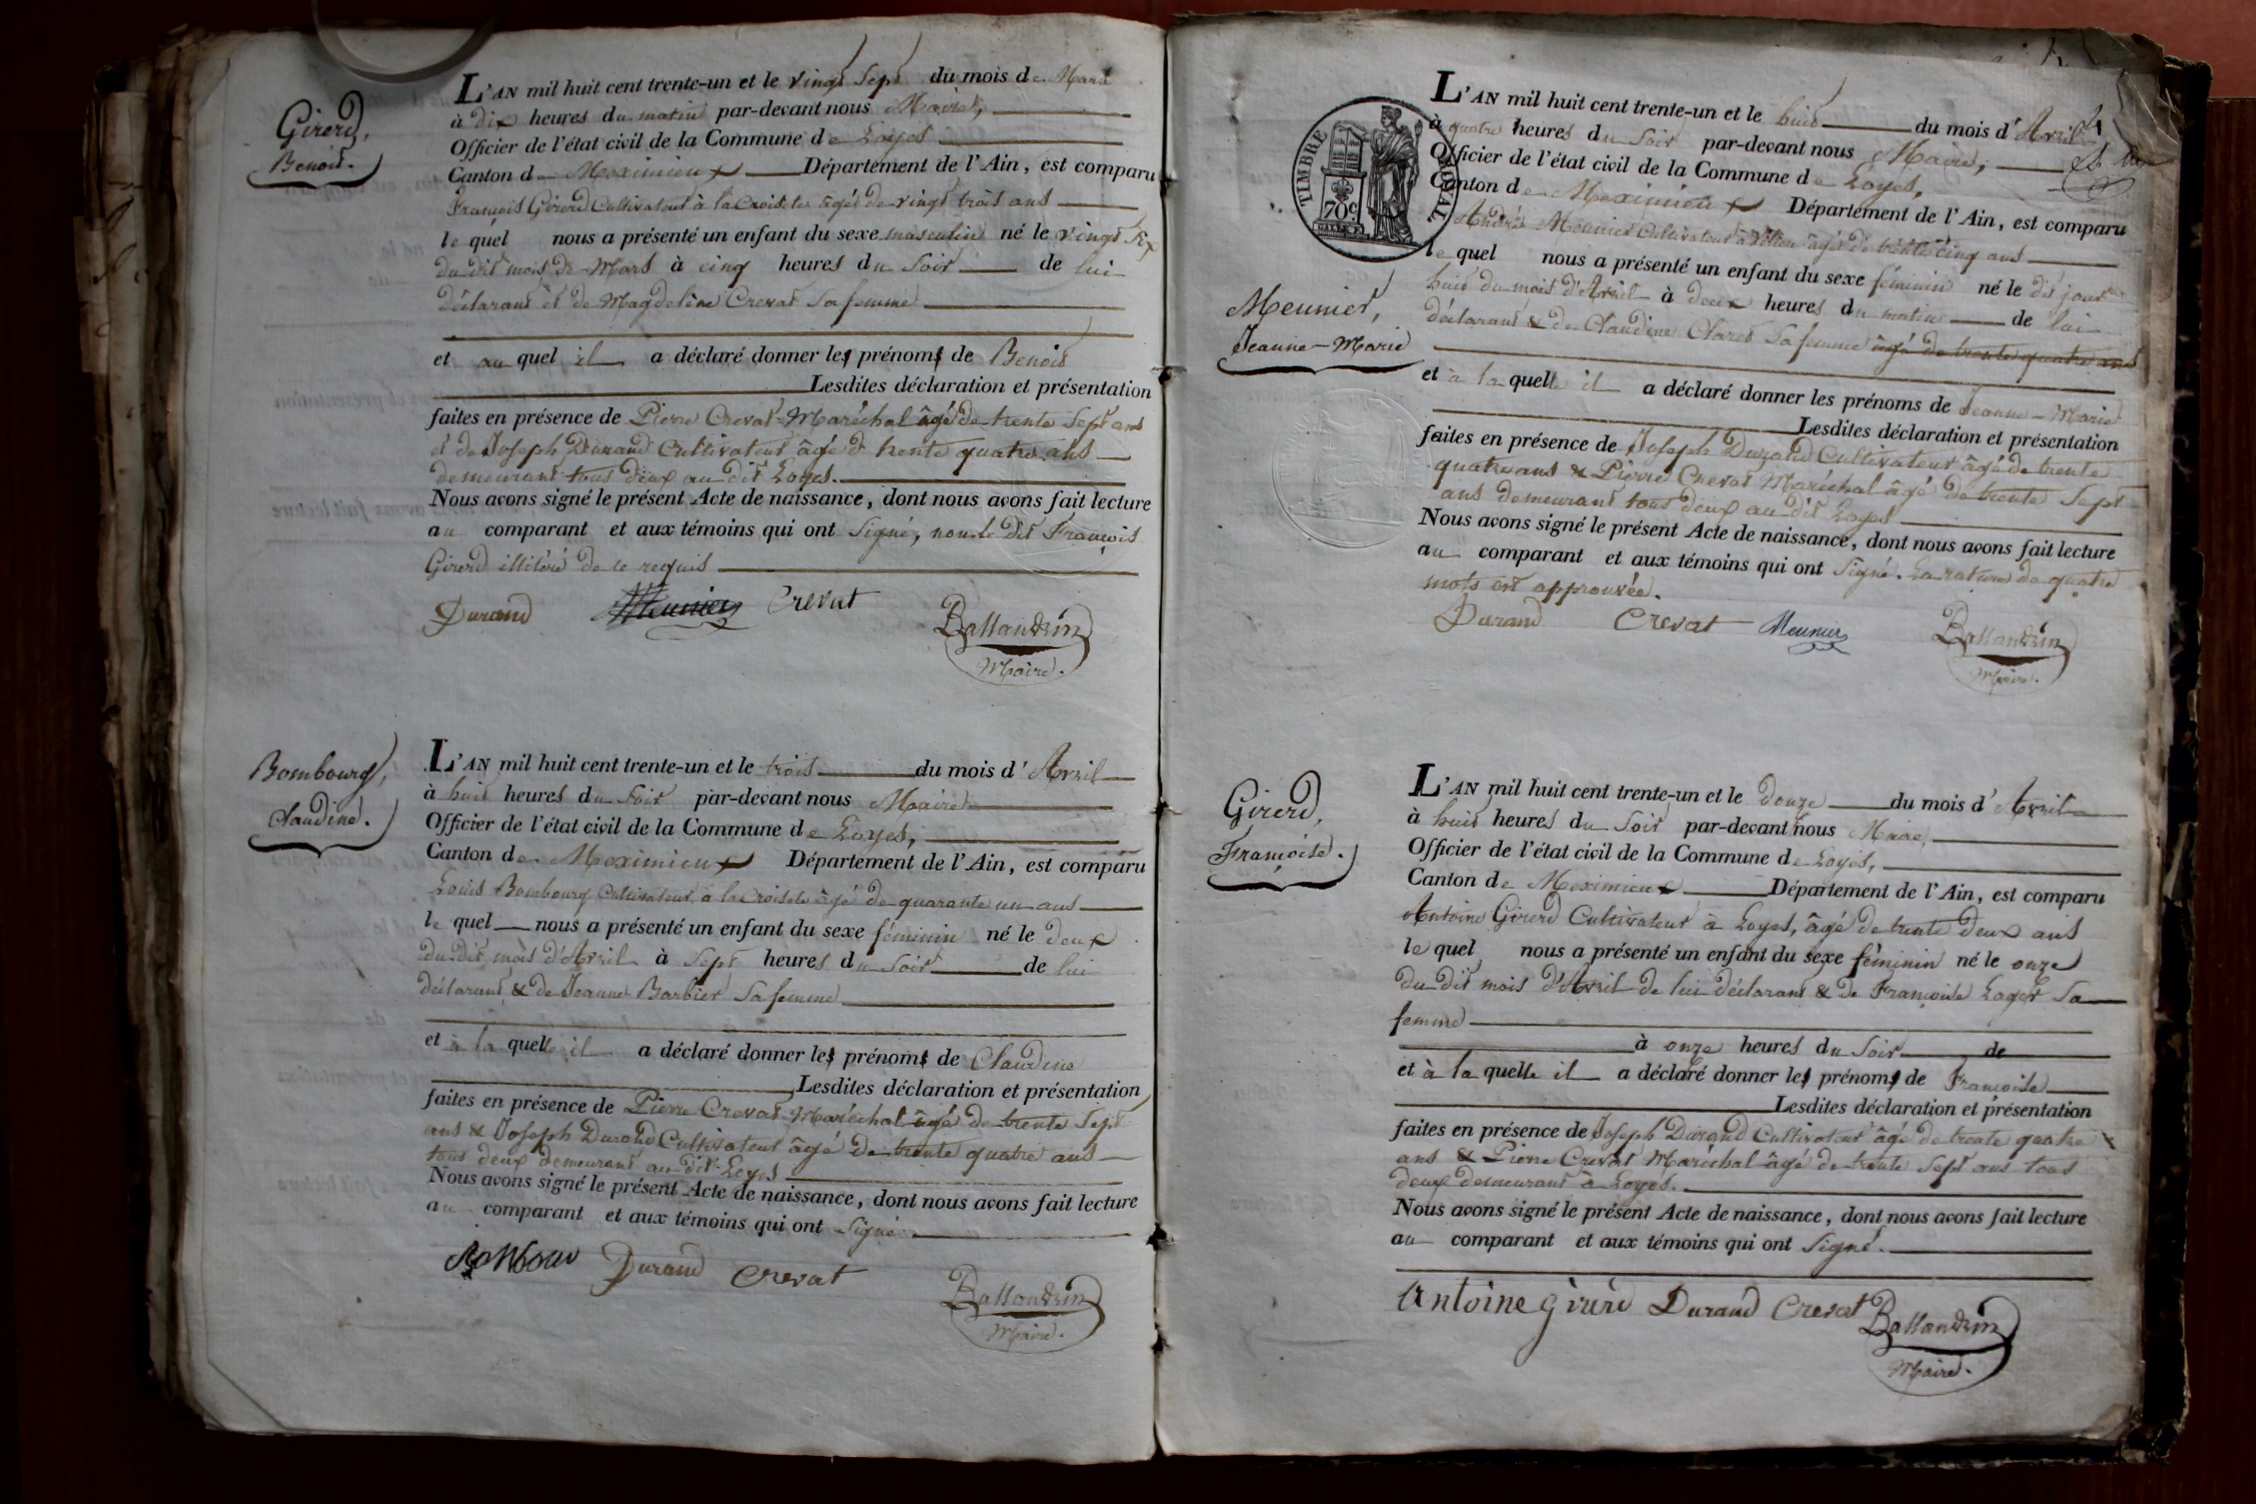 Girerd,
Benoit.
L'AN mil huit cent trente-un et le vingt Sept du mois de Mars
à dix heures du matin par-devant nous Maire,
Officier de l'état civil de la Commune de Loyes
Canton de Meximieux Département de l'Ain, est comparu
François Girerd Cultivateur à la Croisette âgé de vingt trois ans
le quel nous a présenté un enfant du sexe masculin né le vingt Six
du dit mois de Mars à cinq heures du Soir de lui
déclarant et de Magdeleine Crevat Sa femme
et au quel il a déclaré donner les prénoms de Benoit
Lesdites déclaration et présentation
faites en présence de Pierre Crevat Maréchal âgé de trente Sept ans
et de Joseph Durand Cultivateur âgé de trente quatre ans
demeurant tous deux au dit Loyes.
Nous avons signé le présent Acte de naissance, dont nous avons fait lecture
au comparant et aux témoins qui ont Signé, non le dit François
Girerd illitéré de ce requis
Durand Meunier Crevat Ballandrin
Maire.
Bombourg,
Claudine.
L'AN mil huit cent trente-un et le trois du mois d'Avril
à huit heures du Soir par-devant nous Maire
Officier de l'état civil de la Commune de Loyes,
Canton de Meximieux Département de l'Ain, est comparu
Louis Bombourg Cultivateur à la Croisette âgé de quarante un ans
le quel nous a présenté un enfant du sexe féminin né le deux
du dit mois d'Avril à Sept heures du Soir de lui
déclarant & de Jeanne Barbier Sa femme
et à la quelle il a déclaré donner les prénoms de Claudine
Lesdites déclaration et présentation
faites en présence de Pierre Crevat Maréchal âgé de trente Sept
ans & Joseph Durand Cultivateur âgé de trente quatre ans
tous deux demeurant au dit Loyes
Nous avons signé le présent Acte de naissance, dont nous avons fait lecture
au comparant et aux témoins qui ont Signé
Durand Crevat Ballandrin
Maire.
TIMBRE ROYAL
70c
Meunier,
Jeanne-Marie
L'AN mil huit cent trente-un et le huit du mois d'Avril
à quatre heures du Soir par-devant nous Maire,
Officier de l'état civil de la Commune de Loyes,
Canton de Meximieux Département de l'Ain, est comparu
André Meunier Cultivateur à âgé de trente cinq ans
le quel nous a présenté un enfant du sexe féminin né le dit jour
huit du mois d'Avril à deux heures du matin de lui
déclarant & de Claudine Claret Sa femme âgé de trente quatre ans
et à la quelle il a déclaré donner les prénoms de Jeanne-Marie
Lesdites déclaration et présentation
faites en présence de Joseph Durand Cultivateur âgé de trente
quatre ans & Pierre Crevat Maréchal âgé de trente Sept
ans demeurant tous deux au dit Loyes
Nous avons signé le présent Acte de naissance, dont nous avons fait lecture
au comparant et aux témoins qui ont Signé. La rature de quatre
mots est approuvée.
Durand Crevat Meunier Ballandrin
Maire.
Girerd,
Françoise.
L'AN mil huit cent trente-un et le douze du mois d'Avril
à huit heures du Soir par-devant nous Maire,
Officier de l'état civil de la Commune de Loyes,
Canton de Meximieux Département de l'Ain, est comparu
Antoine Girerd Cultivateur à Loyes, âgé de trente deux ans
le quel nous a présenté un enfant du sexe féminin né le onze
du dit mois d'Avril de lui déclarant & de Françoise Lager Sa
femme
à onze heures du Soir de
et à la quelle il a déclaré donner les prénoms de Françoise
Lesdites déclaration et présentation
faites en présence de Joseph Durand Cultivateur âgé de trente quatre
ans & Pierre Crevat Maréchal âgé de trente Sept ans tous
deux demeurant à Loyes.
Nous avons signé le présent Acte de naissance, dont nous avons fait lecture
au comparant et aux témoins qui ont Signé.
Antoine girerd Durand Crevat Ballandrin
Maire.